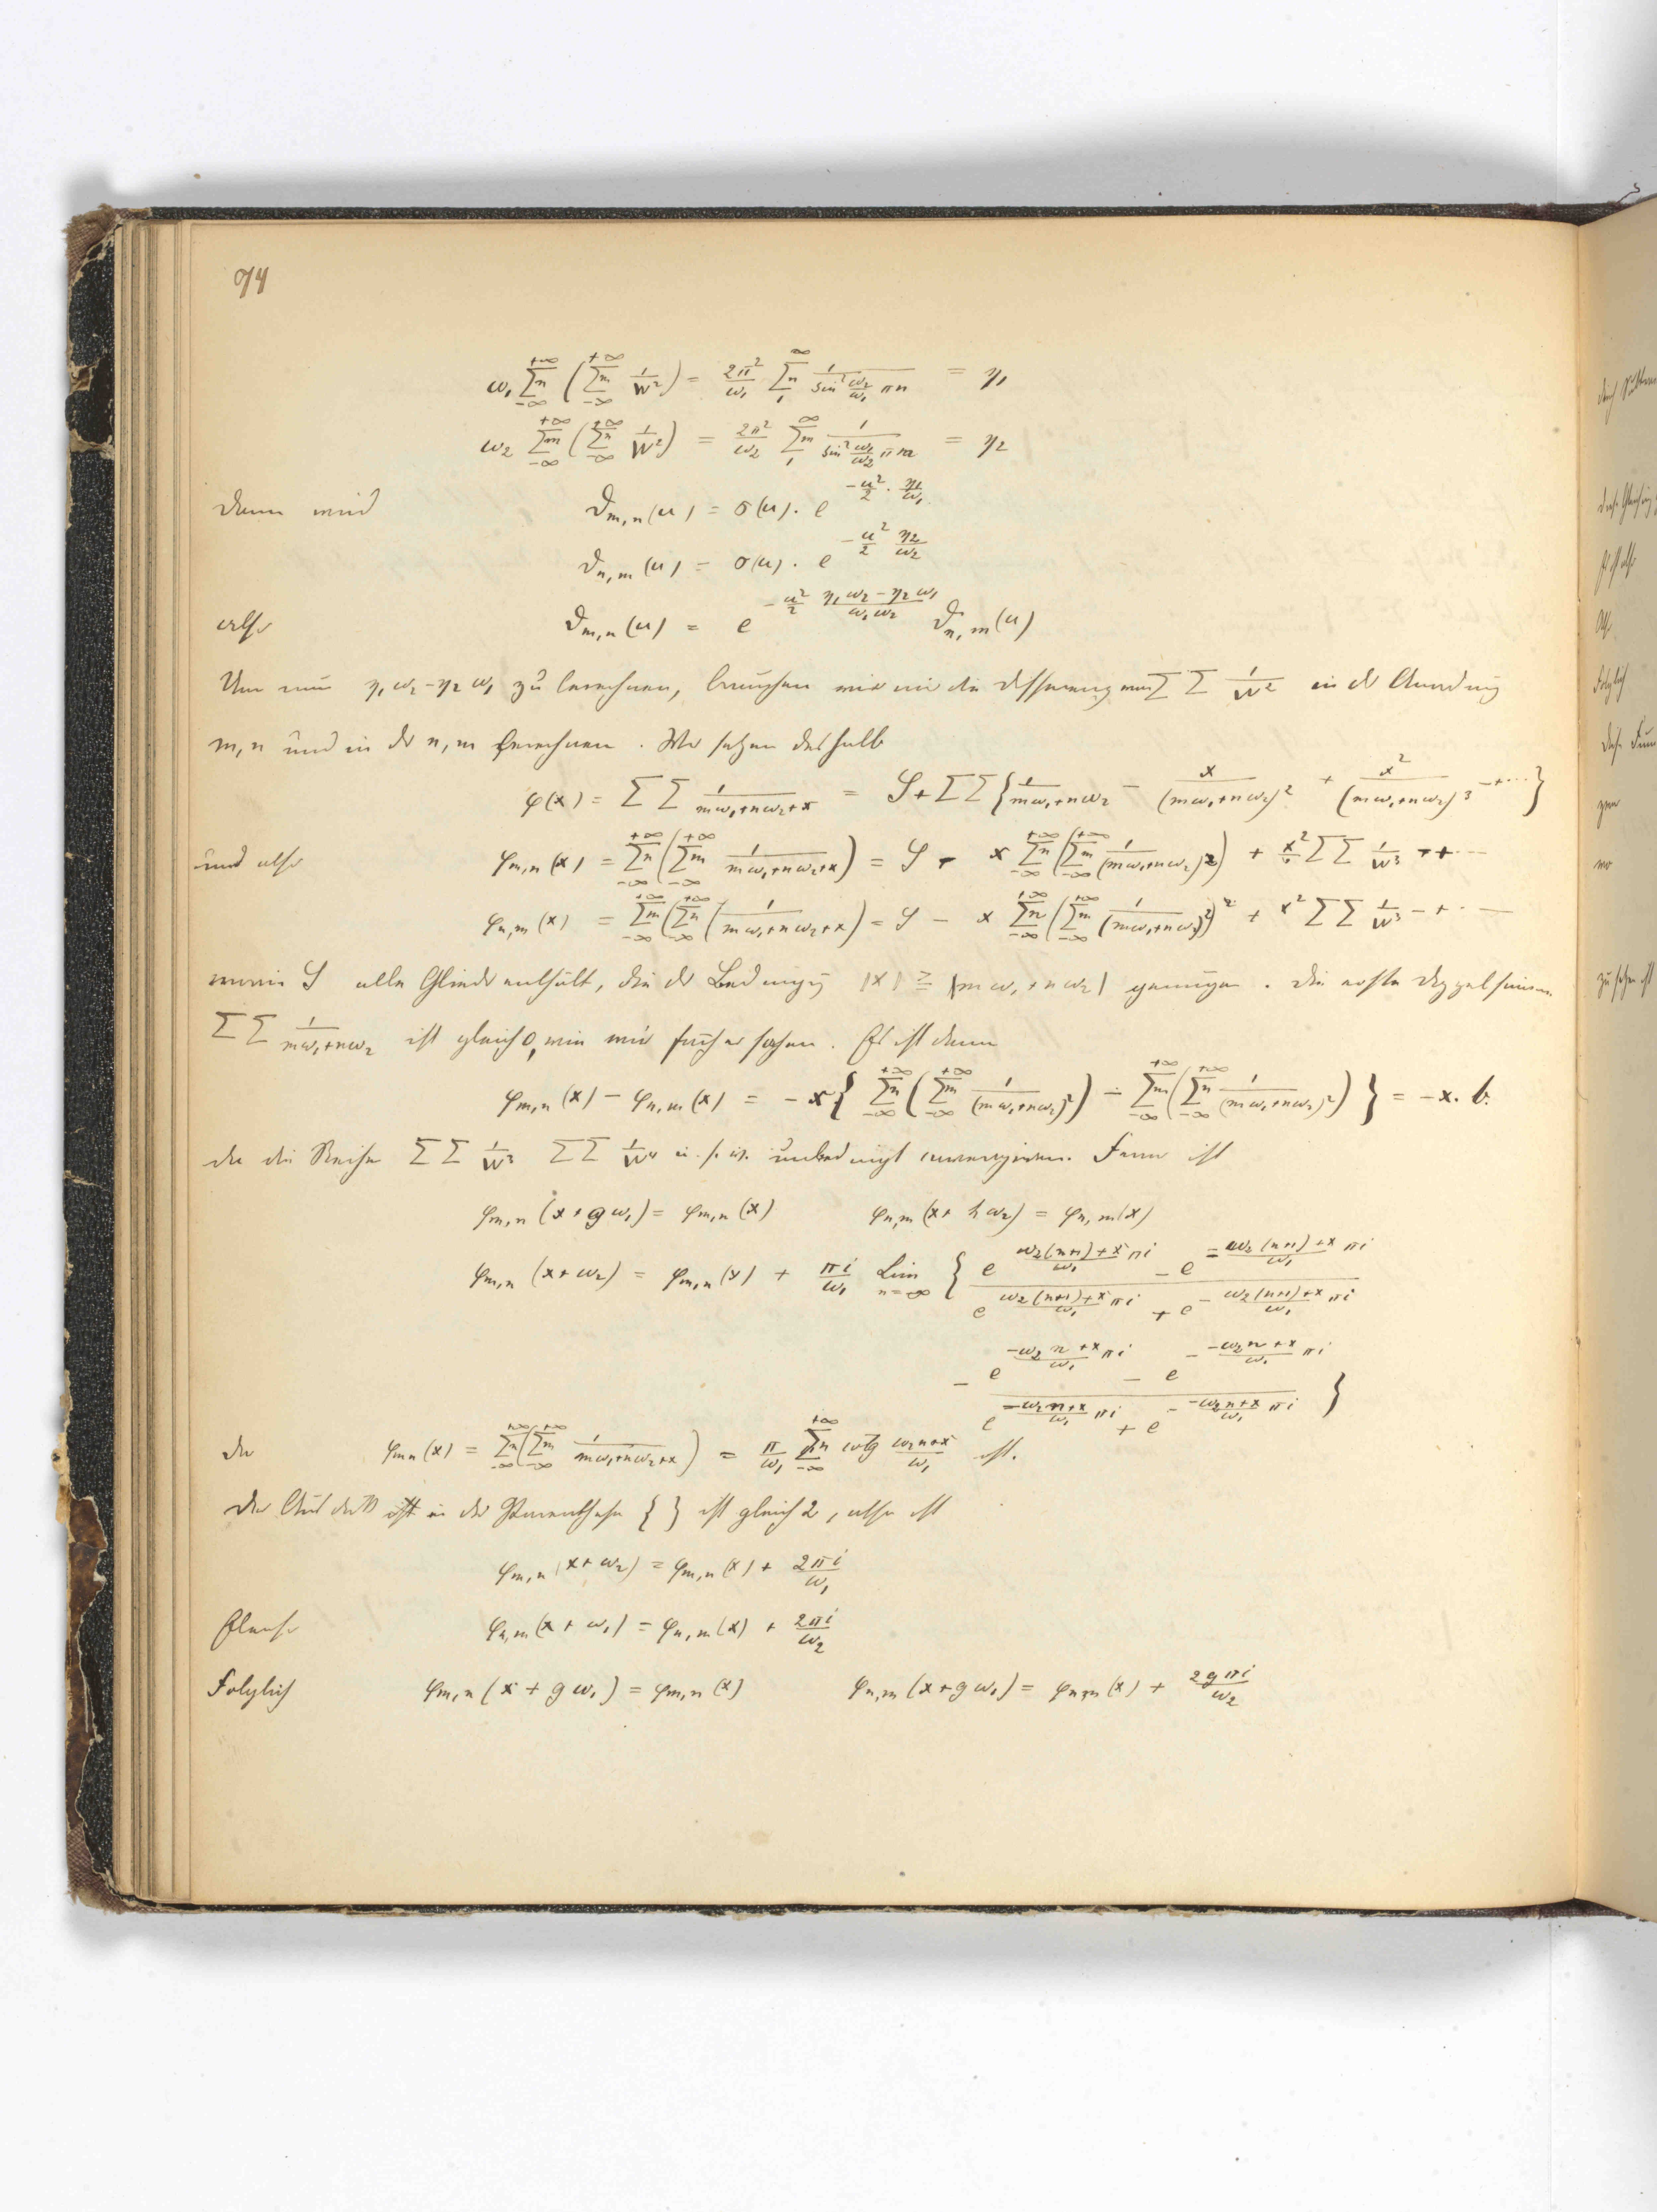 94
ω₁ Σₙ_{-∞}^{+∞} (Σₘ_{-∞}^{+∞} 1/w²) = 2π²/ω₁ Σₙ_{1}^{∞} 1/(sin² ω₂/ω₁ πn) = η₁
ω₂ Σₘ_{-∞}^{+∞} (Σₙ_{-∞}^{+∞} 1/w²) = 2π²/ω₂ Σₘ_{1}^{∞} 1/(sin² ω₁/ω₂ πm) = η₂
dann wird ϑ_{m,n}(u) = σ(u). e^{-u²/2 . η₁/ω₁}
ϑ_{n,m}(u) = σ(u). e^{-u²/2 η₂/ω₂}
also ϑ_{m,n}(u) = e^{-u²/2 (η₁ω₂-η₂ω₁)/(ω₁ω₂)} ϑ_{n,m}(u)
Um nun η₁ω₂-η₂ω₁ zu berechnen, brauchen wir nur die Differenz von ΣΣ 1/w² in der Anordnung
m,n und in der n,m berechnen. Wir setzen deshalb
φ(x) = ΣΣ 1/(mω₁+nω₂+x) = S + ΣΣ{1/(mω₁+nω₂) - x/(mω₁+nω₂)² + x²/(mω₁+nω₂)³ -+···}
und also φ_{m,n}(x) = Σₙ_{-∞}^{+∞}(Σₘ_{-∞}^{+∞} 1/(mω₁+nω₂+x)) = S - x Σₙ_{-∞}^{+∞}(Σₘ_{-∞}^{+∞} 1/(mω₁+nω₂)²) + x² ΣΣ 1/w³ -+···
φ_{n,m}(x) = Σₘ_{-∞}^{+∞}(Σₙ_{-∞}^{+∞} (1/(mω₁+nω₂+x)) = S - x Σₙ_{-∞}^{+∞}(Σₘ_{-∞}^{+∞} 1/(mω₁+nω₂)²) + x² ΣΣ 1/w³ -+···
worin S alle Glieder enthält, die der Bedingung |x| ≧ |mω₁+nω₂| genügen. Die erste Doppelsumme
ΣΣ 1/(mω₁+nω₂) ist gleich 0, wie wir früher sahen. Es ist dann
φ_{m,n}(x) - φ_{n,m}(x) = -x{Σₙ_{-∞}^{+∞}(Σₘ_{-∞}^{+∞} 1/(mω₁+nω₂)²) - Σₘ_{-∞}^{+∞}(Σₙ_{-∞}^{+∞} 1/(mω₁+nω₂)²)} = -x. b.
da die Reihen ΣΣ 1/w³ ΣΣ 1/w⁴ u. s. w. unbedingt convergieren. Ferner ist
φ_{m,n}(x+gω₁) = φ_{m,n}(x) φ_{n,m}(x+hω₂) = φ_{n,m}(x)
φ_{m,n}(x+ω₂) = φ_{m,n}(x) + πi/ω₁ Lim_{n=∞} {(e^{(ω₂(n+1)+x)/ω₁ πi} - e^{-(ω₂(n+1)+x)/ω₁ πi})/(e^{(ω₂(n+1)+x)/ω₁ πi} + e^{-(ω₂(n+1)+x)/ω₁ πi})
- (e^{(-ω₂n+x)/ω₁ πi} - e^{-(-ω₂n+x)/ω₁ πi})/(e^{(-ω₂n+x)/ω₁ πi} + e^{-(-ω₂n+x)/ω₁ πi})}
da φ_{mn}(x) = Σₙ_{-∞}^{+∞}(Σₘ_{-∞}^{+∞} 1/(mω₁+nω₂+x)) = π/ω₁ Σₙ_{-∞}^{+∞} cotg (ω₂n+x)/ω₁ ist.
Der Ausdruck in der Parenthese { } ist gleich 2, also ist
φ_{m,n}(x+ω₂) = φ_{m,n}(x) + 2πi/ω₁
Ebenso φ_{n,m}(x+ω₁) = φ_{n,m}(x) + 2πi/ω₂
Folglich φ_{m,n}(x+gω₁) = φ_{m,n}(x) φ_{n,m}(x+gω₁) = φ_{n,m}(x) + 2gπi/ω₂